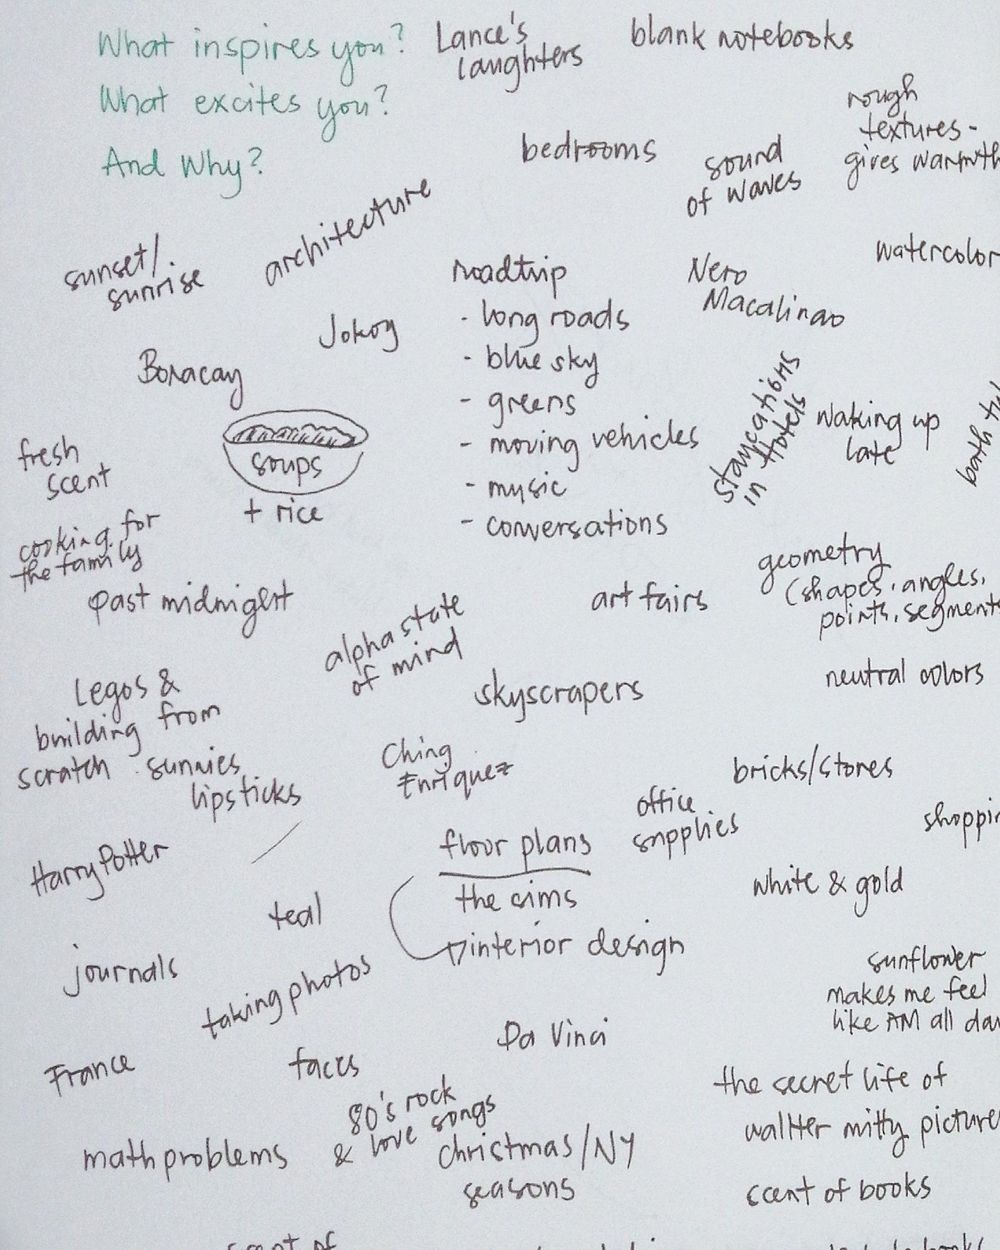 What inspires you?
What excites you?
And Why?
Lance's
laughters
blank notebooks
rough
textures -
gives warmth
bedrooms
sound
of waves
sunset/
sunrise
architecture
roadtrip
- long roads
- blue sky
- greens
- moving vehicles
- music
- conversations
Nero
Macalinao
watercolor
Jokoy
Boracay
soups
+ rice
fresh
scent
staycations
in Hotels
waking up
late
bath
cooking for
the family
past midnight
alpha state
of mind
art fairs
geometry
(shapes, angles,
points, segments
neutral colors
Legos &
building from
scratch
sunnies
lipsticks
skyscrapers
Ching
Enriquez
bricks/stores
office
supplies
shoppin
Harry Potter
floor plans
the sims
interior design
white & gold
teal
journals
taking photos
sunflower
makes me feel
like AM all day
Da Vinci
France
faces
80's rock
& love songs
the secret life of
wallter mitty picture
math problems
christmas/NY
seasons
scent of books